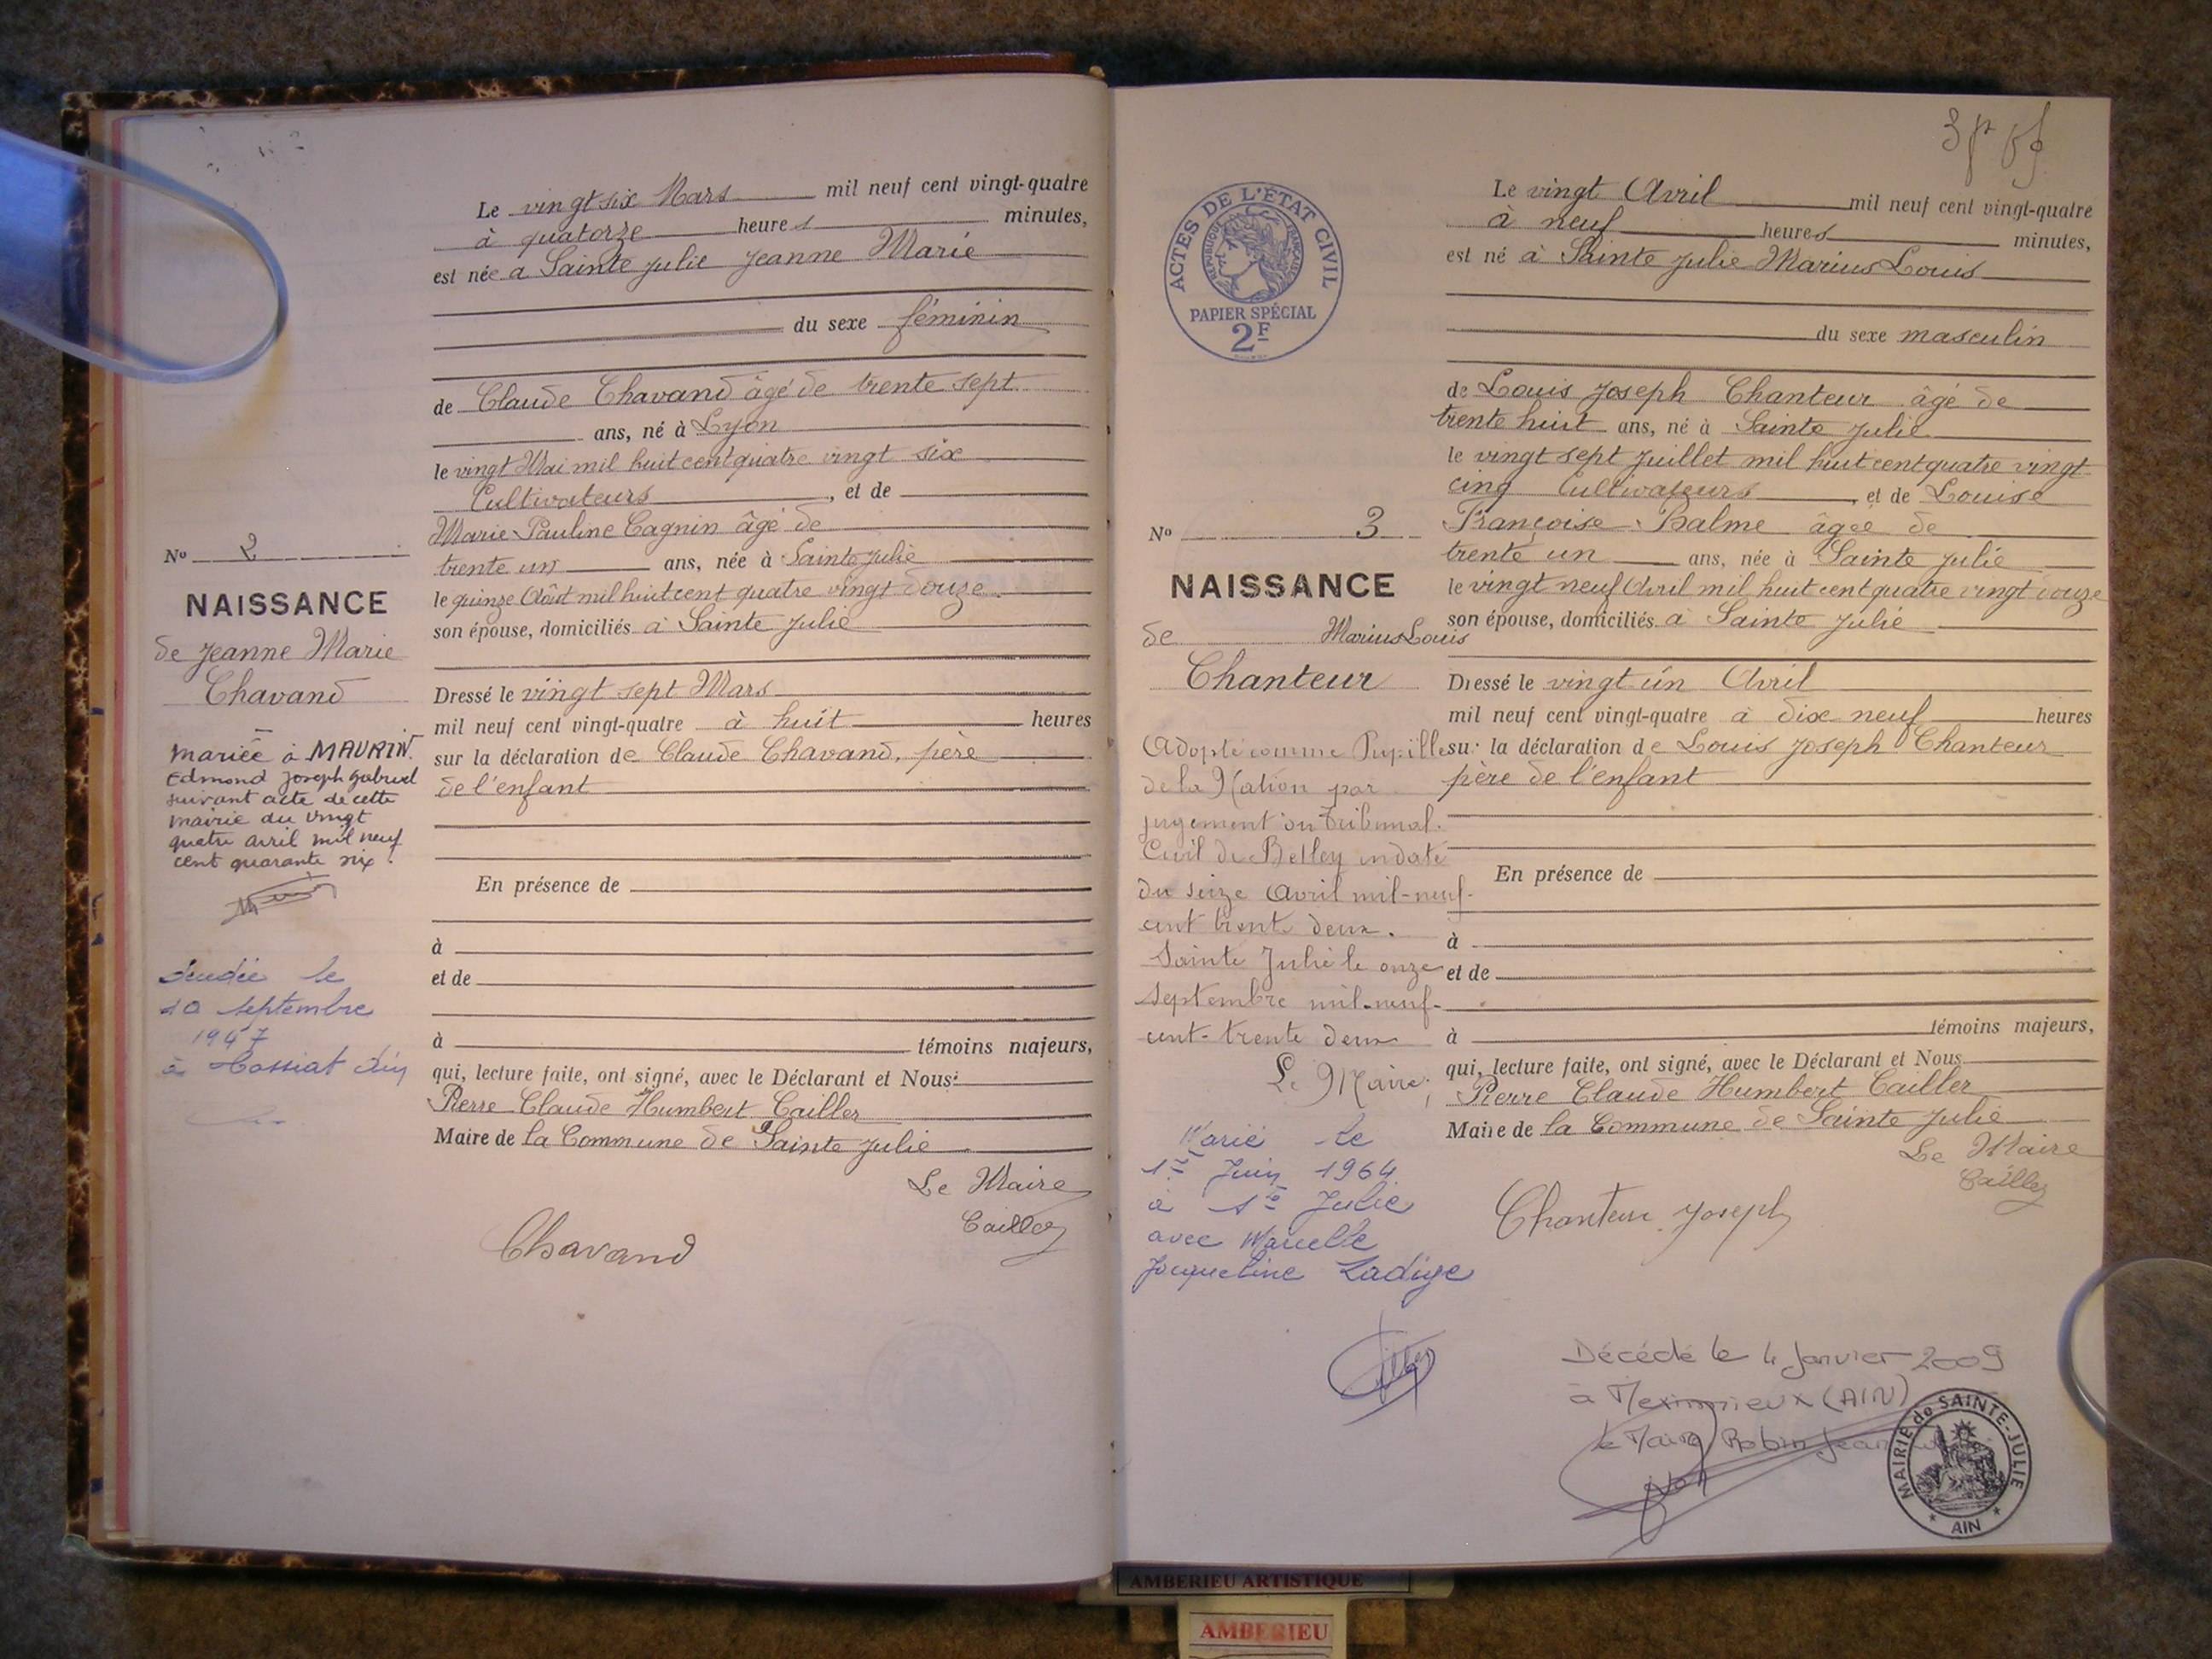 Le vingt six Mars mil neuf cent vingt-quatre
à quatorze heures minutes,
est née à Sainte Julie Jeanne Marie
du sexe féminin
de Claude Chavand âgé de trente sept
ans, né à Lyon
le vingt Mai mil huit cent quatre vingt six
Cultivateurs, et de
Marie Pauline Cagnin âgé de
trente un ans, née à Sainte Julie
le quinze Août mil huit cent quatre vingt douze
son épouse, domiciliés à Sainte Julie
Dressé le vingt sept Mars
mil neuf cent vingt-quatre à huit heures
sur la déclaration de Claude Chavand, père
de l'enfant
En présence de
à
et de
à témoins majeurs,
qui, lecture faite, ont signé, avec le Déclarant et Nous:
Pierre Claude Humbert Cailler
Maire de la Commune de Sainte Julie
Le Maire
Cailler
Chavand
No 2
NAISSANCE
de Jeanne Marie
Chavand
mariée à MAURIN.
Edmond Joseph Gabriel
suivant acte de cette
mairie du vingt
quatre avril mil neuf
cent quarante six.
le
10 septembre
1947
à Ain
ACTES DE L'ÉTAT CIVIL
RÉPUBLIQUE FRANÇAISE
PAPIER SPÉCIAL
2F
No 3
NAISSANCE
de Marius Louis
Chanteur
Adopté comme Pupille
de la Nation par
jugement du Tribunal
Civil de Belley en date
du seize Avril mil-neuf-
cent trente deux.
Sainte Julie le onze
septembre mil-neuf-
cent-trente deux
Le Maire,
Marié le
1er Juin 1964
à Ste Julie
avec Marcelle
Jacqueline Ladige
Le vingt Avril mil neuf cent vingt-quatre
à neuf heures minutes,
est né à Sainte Julie Marius Louis
du sexe masculin
de Louis Joseph Chanteur âgé de
trente huit ans, né à Sainte Julie
le vingt sept Juillet mil huit cent quatre vingt
cinq Cultivateurs, et de Louise
Françoise Balme âgée de
trente un ans, née à Sainte Julie
le vingt neuf Avril mil huit cent quatre vingt douze
son épouse, domiciliés à Sainte Julie
Dressé le vingt un Avril
mil neuf cent vingt-quatre à dix neuf heures
sur la déclaration de Louis Joseph Chanteur
père de l'enfant
En présence de
à
et de
à témoins majeurs,
qui, lecture faite, ont signé, avec le Déclarant et Nous
Pierre Claude Humbert Cailler
Maire de la Commune de Sainte Julie
Le Maire
Cailler
Chanteur Joseph
Décédé le 4 Janvier 2009
à Meximieux (AIN)
le Maire Robin Jean
MAIRIE de SAINTE-JULIE
* AIN *
AMBERIEU ARTISTIQUE
AMBERIEU